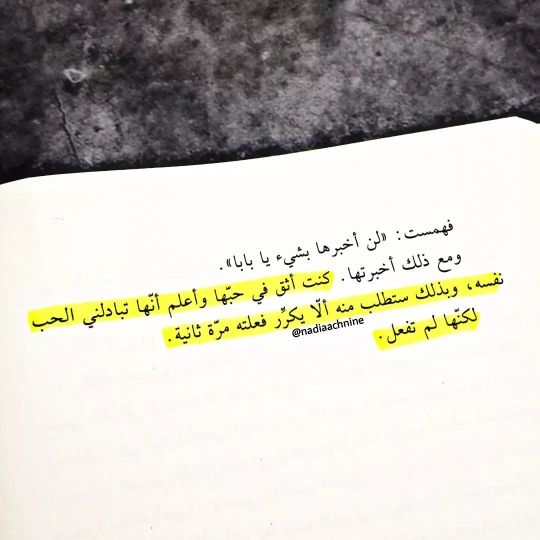 فهمست: «لن أخبرها بشيء يا بابا».
ومع ذلك أخبرتها. كنت أثق في حبّها وأعلم أنّها تبادلني الحب
نفسه، وبذلك ستطلب منه ألّا يكرِّر فعلته مرّة ثانية.
لكنّها لم تفعل.
@nadiaachnine